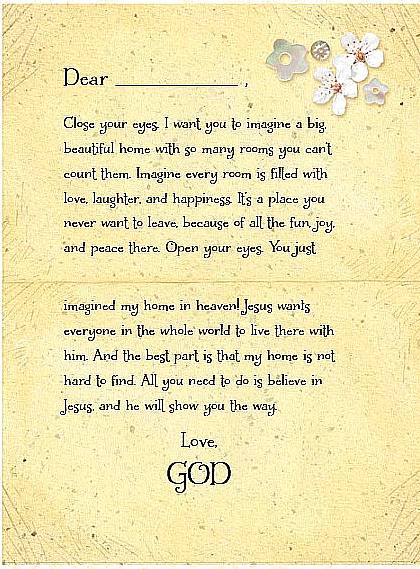 Dear ____________ ,
Close your eyes. I want you to imagine a big,
beautiful home with so many rooms you can't
count them. Imagine every room is filled with
love, laughter, and happiness. It's a place you
never want to leave, because of all the fun, joy,
and peace there. Open your eyes. You just
imagined my home in heaven! Jesus wants
everyone in the whole world to live there with
him. And the best part is that my home is not
hard to find. All you need to do is believe in
Jesus, and he will show you the way.
Love,
GOD